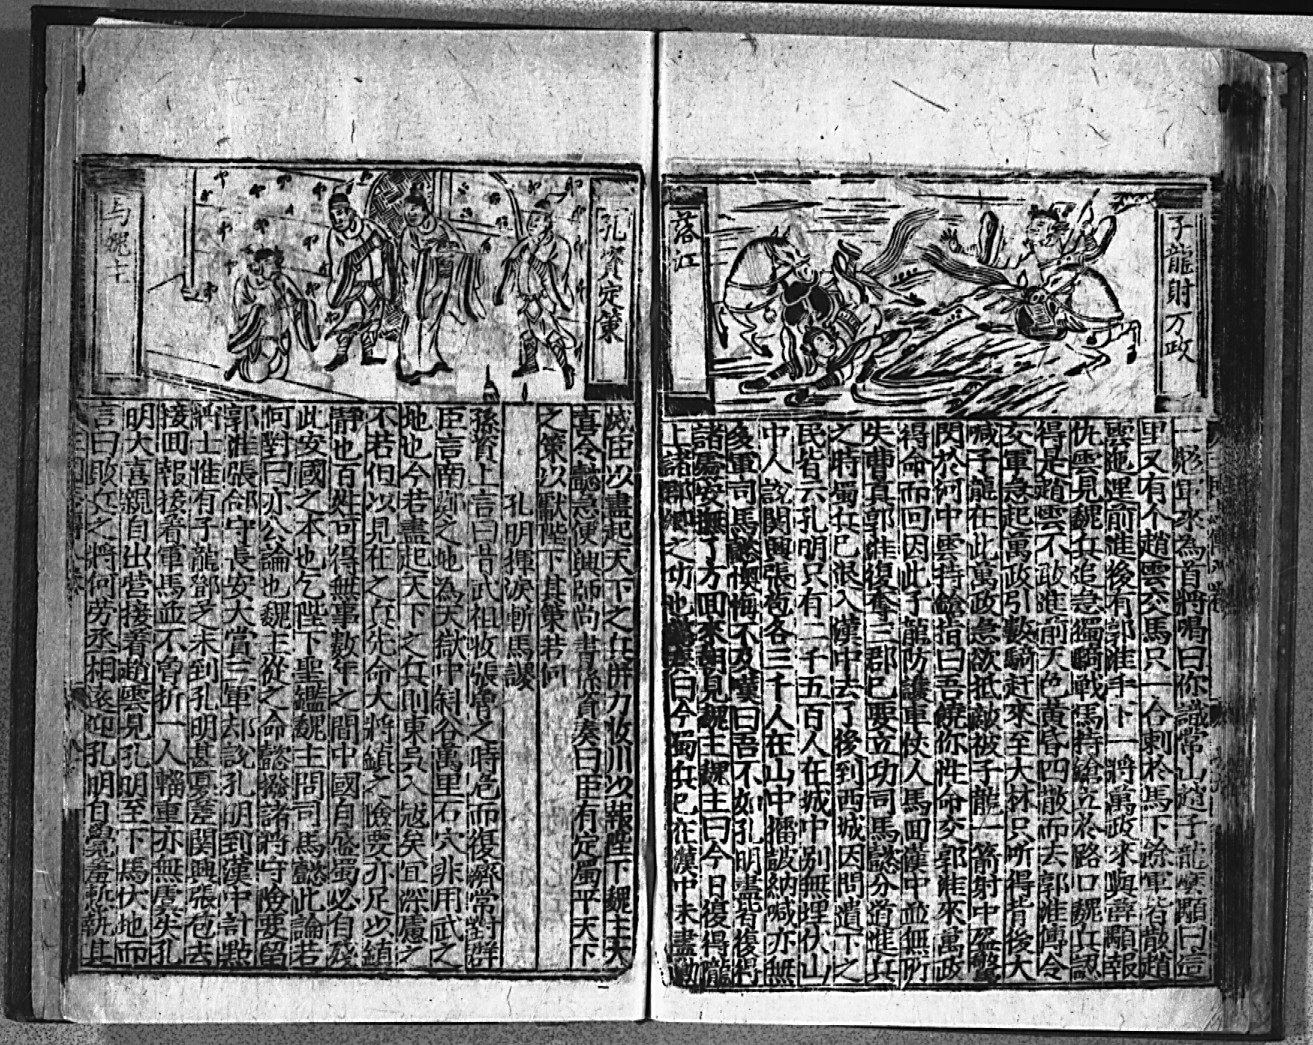 子龍射万政
落江
一彪軍來為首將喝曰你識常山趙子龍麼顒曰這
里又有个趙雲交馬只一合刺於馬下餘軍皆散趙
雲迤逞前進後有郭淮手下一將萬政來與辜顒報
仇雲見魏兵追急獨騎戰馬持鎗立於路口魏兵認
得是趙雲不敢進前天色黃昏四散而去郭淮傳令
交軍急起萬政引數騎赶來至大林只听得背後大
喊子龍在此萬政急欲抵敵被子龍一箭射中盔纓
閃於河中雲持鎗指曰吾饒你性命交郭淮來萬政
得命而回因此子龍防護車仗人馬回漢中並無所
失曹真郭淮復奪三郡已要立功司馬懿分道進兵
之時蜀兵已退入漢中去了後到西城因問遺下之
民皆云孔明只有二千五百人在城中別無埋伏山
中人說関興張苞各三千人在山中擂鼓納喊亦無
多軍司馬懿懊悔不及嘆曰吾不如孔明盡皆復將
諸處安撫了方回來朝見魏主魏主曰今日復得隴
上諸郡卿之功也懿奏曰今蜀兵已在漢中未盡勦
孔資定策
与魏主
滅臣以盡起天下之兵併力收川以報陛下魏主大
喜令懿急便興師尚書孫資奏曰臣有定蜀平天下
之策以獻陛下其策若何
孔明揮淚斬馬謖
孫資上言曰昔武祖收張魯之時危而復濟常對群
臣言南鄭之地為天獄中斜谷萬里石穴非用武之
地也今若盡起天下之兵則東吳入寇矣宜深慮之
不若但以見在之兵先命大將鎮之險要亦足以鎮
靜也百姓可得無事數年之間中國自盛蜀必有殘
此安國之本也乞陛下聖鑑魏主問司馬懿此論若
何對曰亦公論也魏主從之命懿撥諸將守險要留
郭淮張郃守長安大賞三軍却說孔明到漢中計點
將士惟有子龍鄧芝未到孔明甚憂差関興張苞去
接回報接着軍馬並不曾折一人輜重亦無虛失孔
明大喜親自出營接着趙雲見孔明至下馬伏地而
言曰敗兵之將何勞丞相遠迎孔明自覺羞慙執其